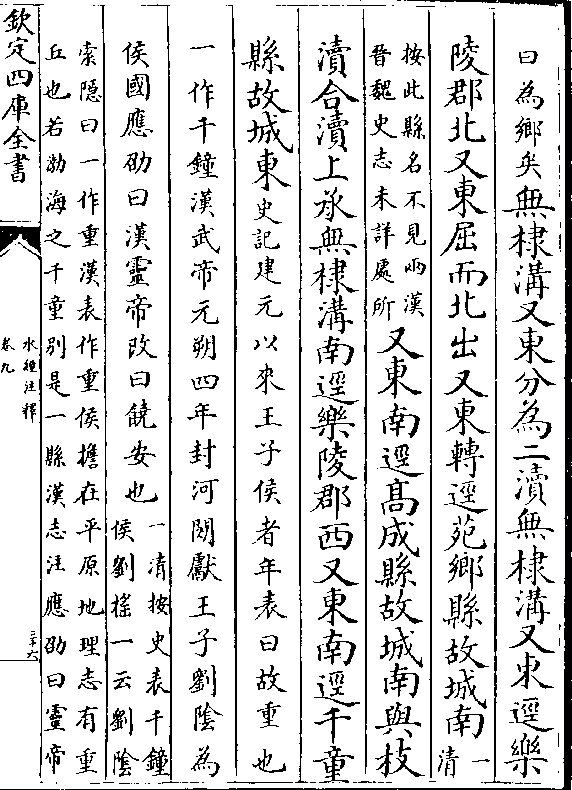 曰為鄉矣無棣溝又東分為二瀆無棣溝又東逕樂
陵郡北又東屈而北出又東轉逕苑鄉縣故城南一清
按此縣名不見兩漢
晉魏史志未詳處所
又東南逕髙成縣故城南與枝
瀆合瀆上承無棣溝南逕樂陵郡西又東南逕千童
縣故城東史記建元以來王子侯者年表曰故重也
一作千鍾漢武帝元朔四年封河閒獻王子劉陰為
侯國應劭曰漢靈帝改曰饒安也
一清按史表千鍾
侯劉搖一云劉陰
索隱曰一作重漢表作重侯擔在平原地理志有重
丘也若渤海之千童別是一縣漢志注應劭曰靈帝
欽定四庫全書
水經注釋
卷九
三十六